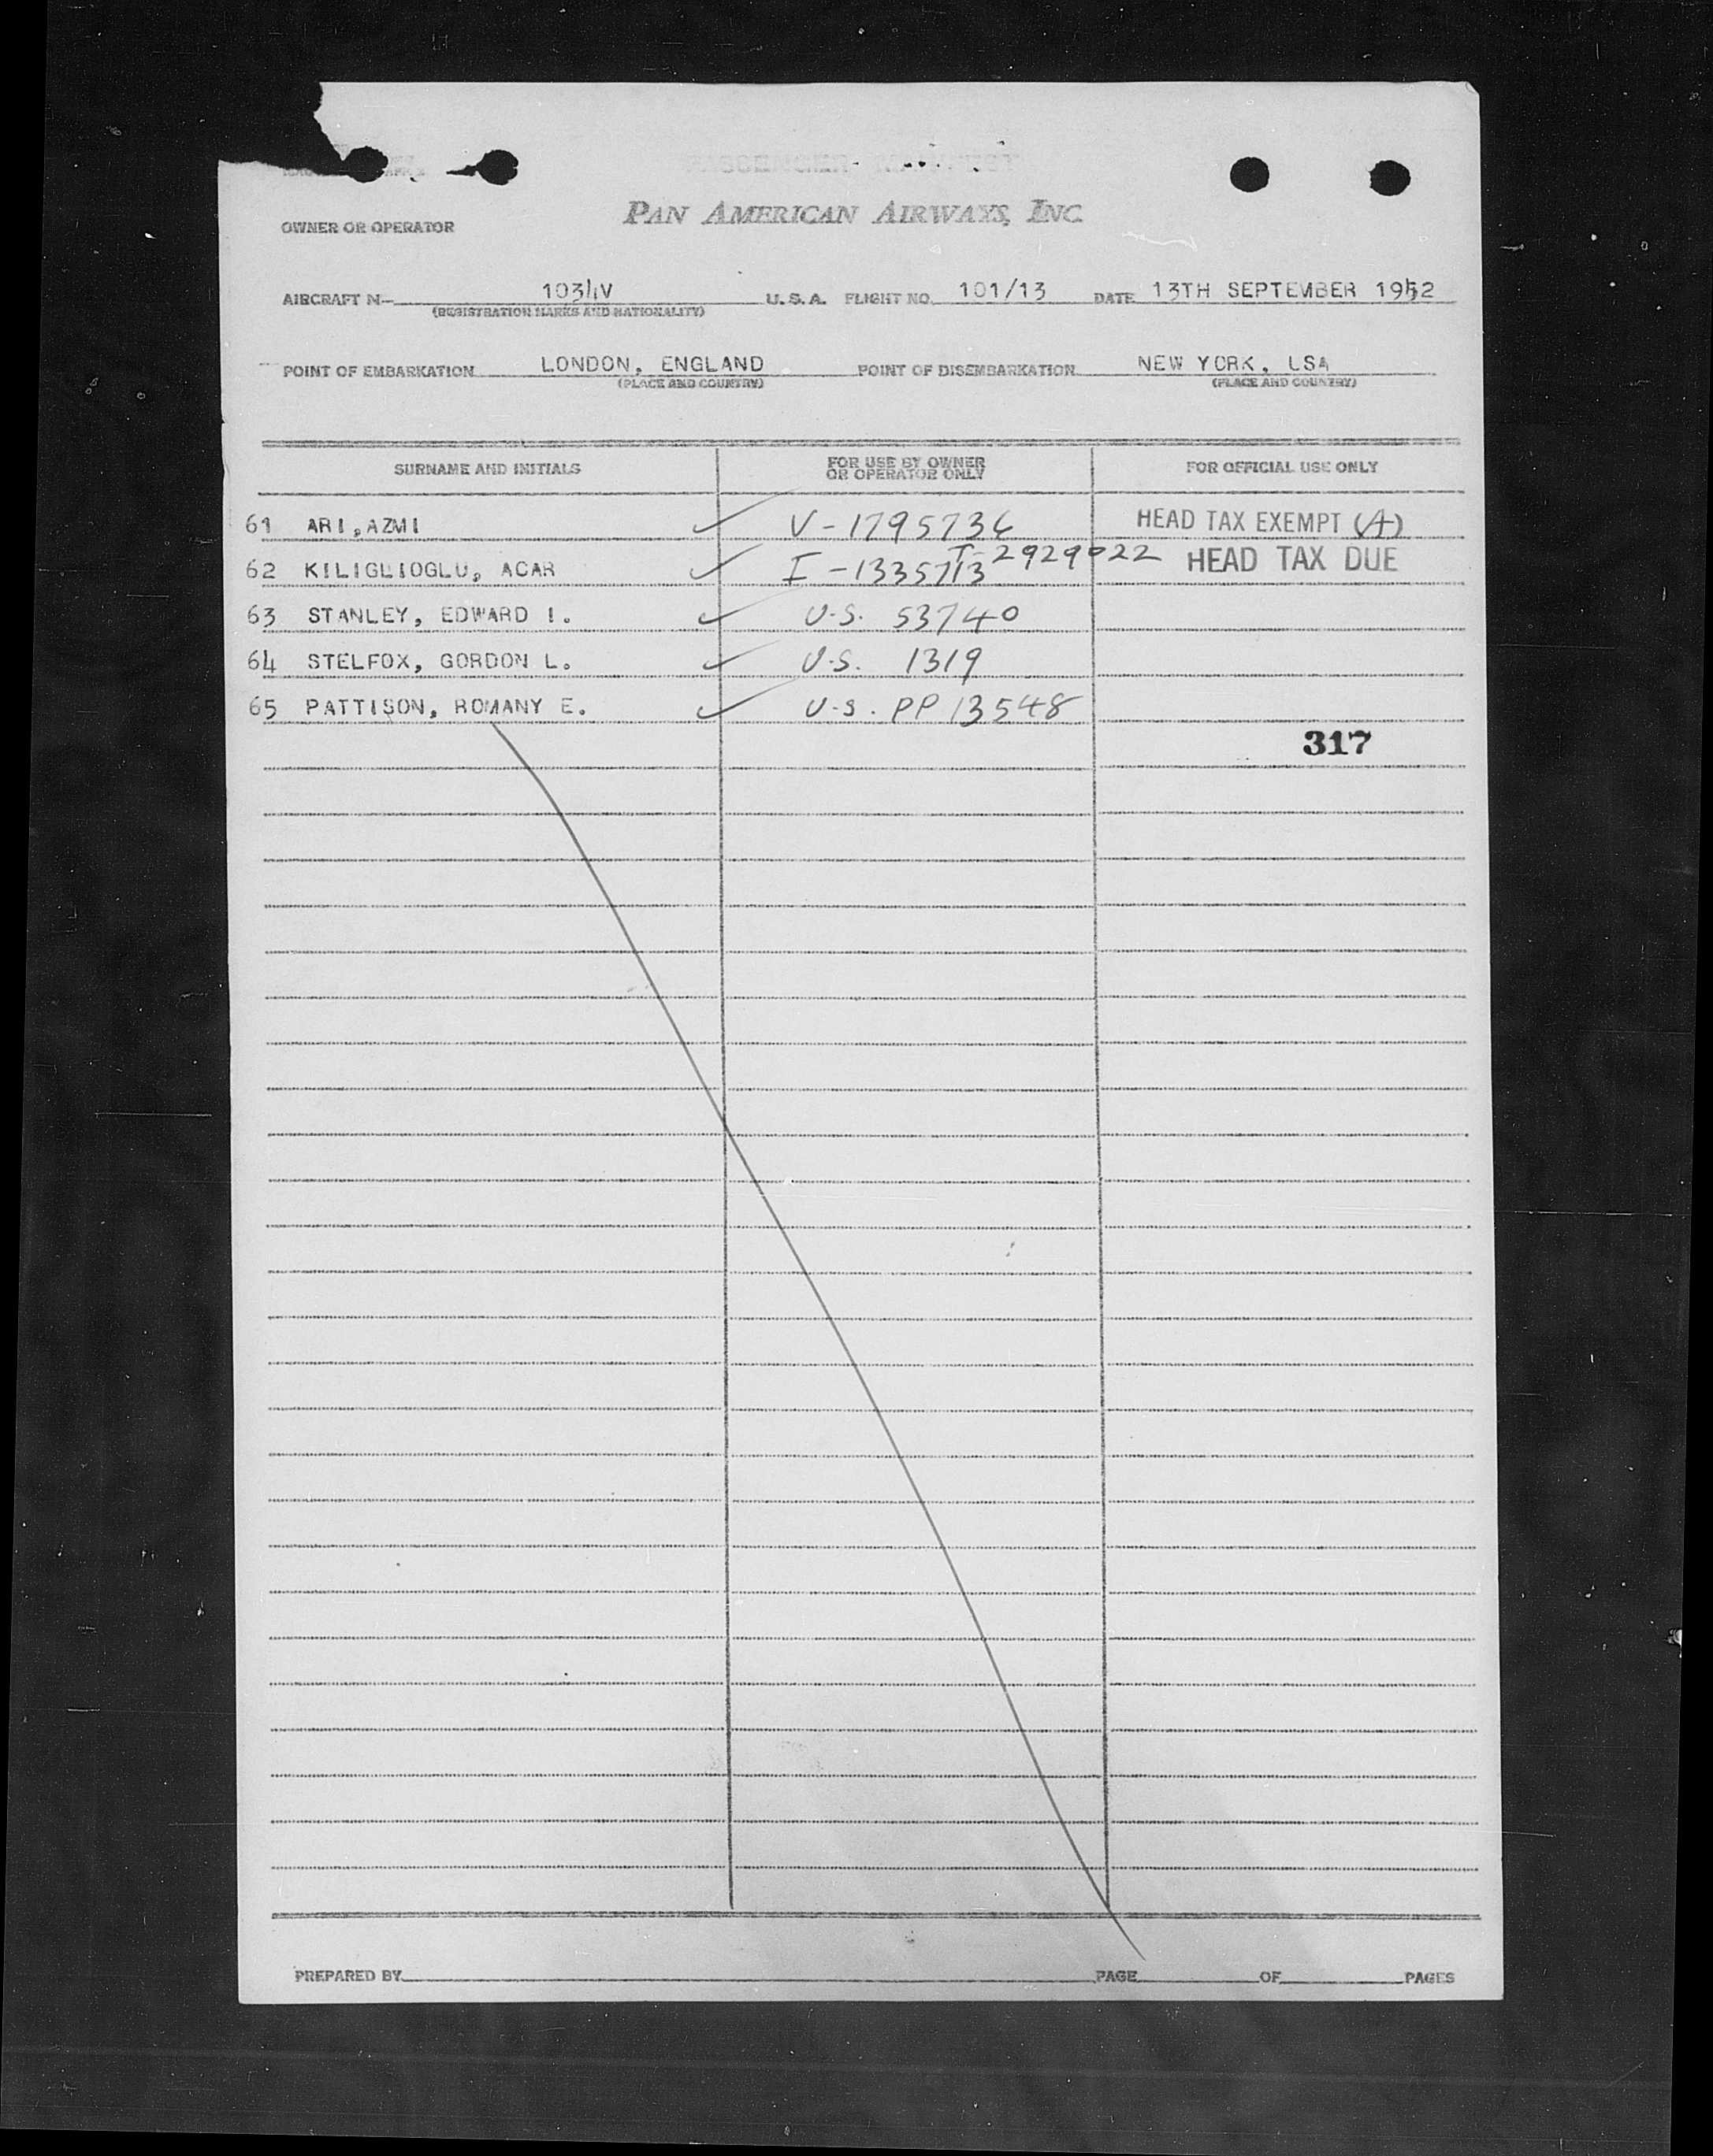 PASSENGER MANIFEST
PAN AMERICAN AIRWAYS, INC.
OWNER OR OPERATOR
AIRCRAFT N- 1034V U. S. A. FLIGHT NO. 101/13 DATE 13TH SEPTEMBER 1952
(REGISTRATION MARKS AND NATIONALITY)
POINT OF EMBARKATION LONDON, ENGLAND POINT OF DISEMBARKATION NEW YORK, USA
(PLACE AND COUNTRY) (PLACE AND COUNTRY)
SURNAME AND INITIALS FOR USE BY OWNER OR OPERATOR ONLY FOR OFFICIAL USE ONLY
61 ARI, AZMI V-1795736 HEAD TAX EXEMPT (A)
62 KILIGLIOGLU, ACAR I-1335713 T-2929022 HEAD TAX DUE
63 STANLEY, EDWARD I. U.S. 53740
64 STELFOX, GORDON L. U.S. 1319
65 PATTISON, ROMANY E. U.S. PP 13548
317
PREPARED BY PAGE OF PAGES